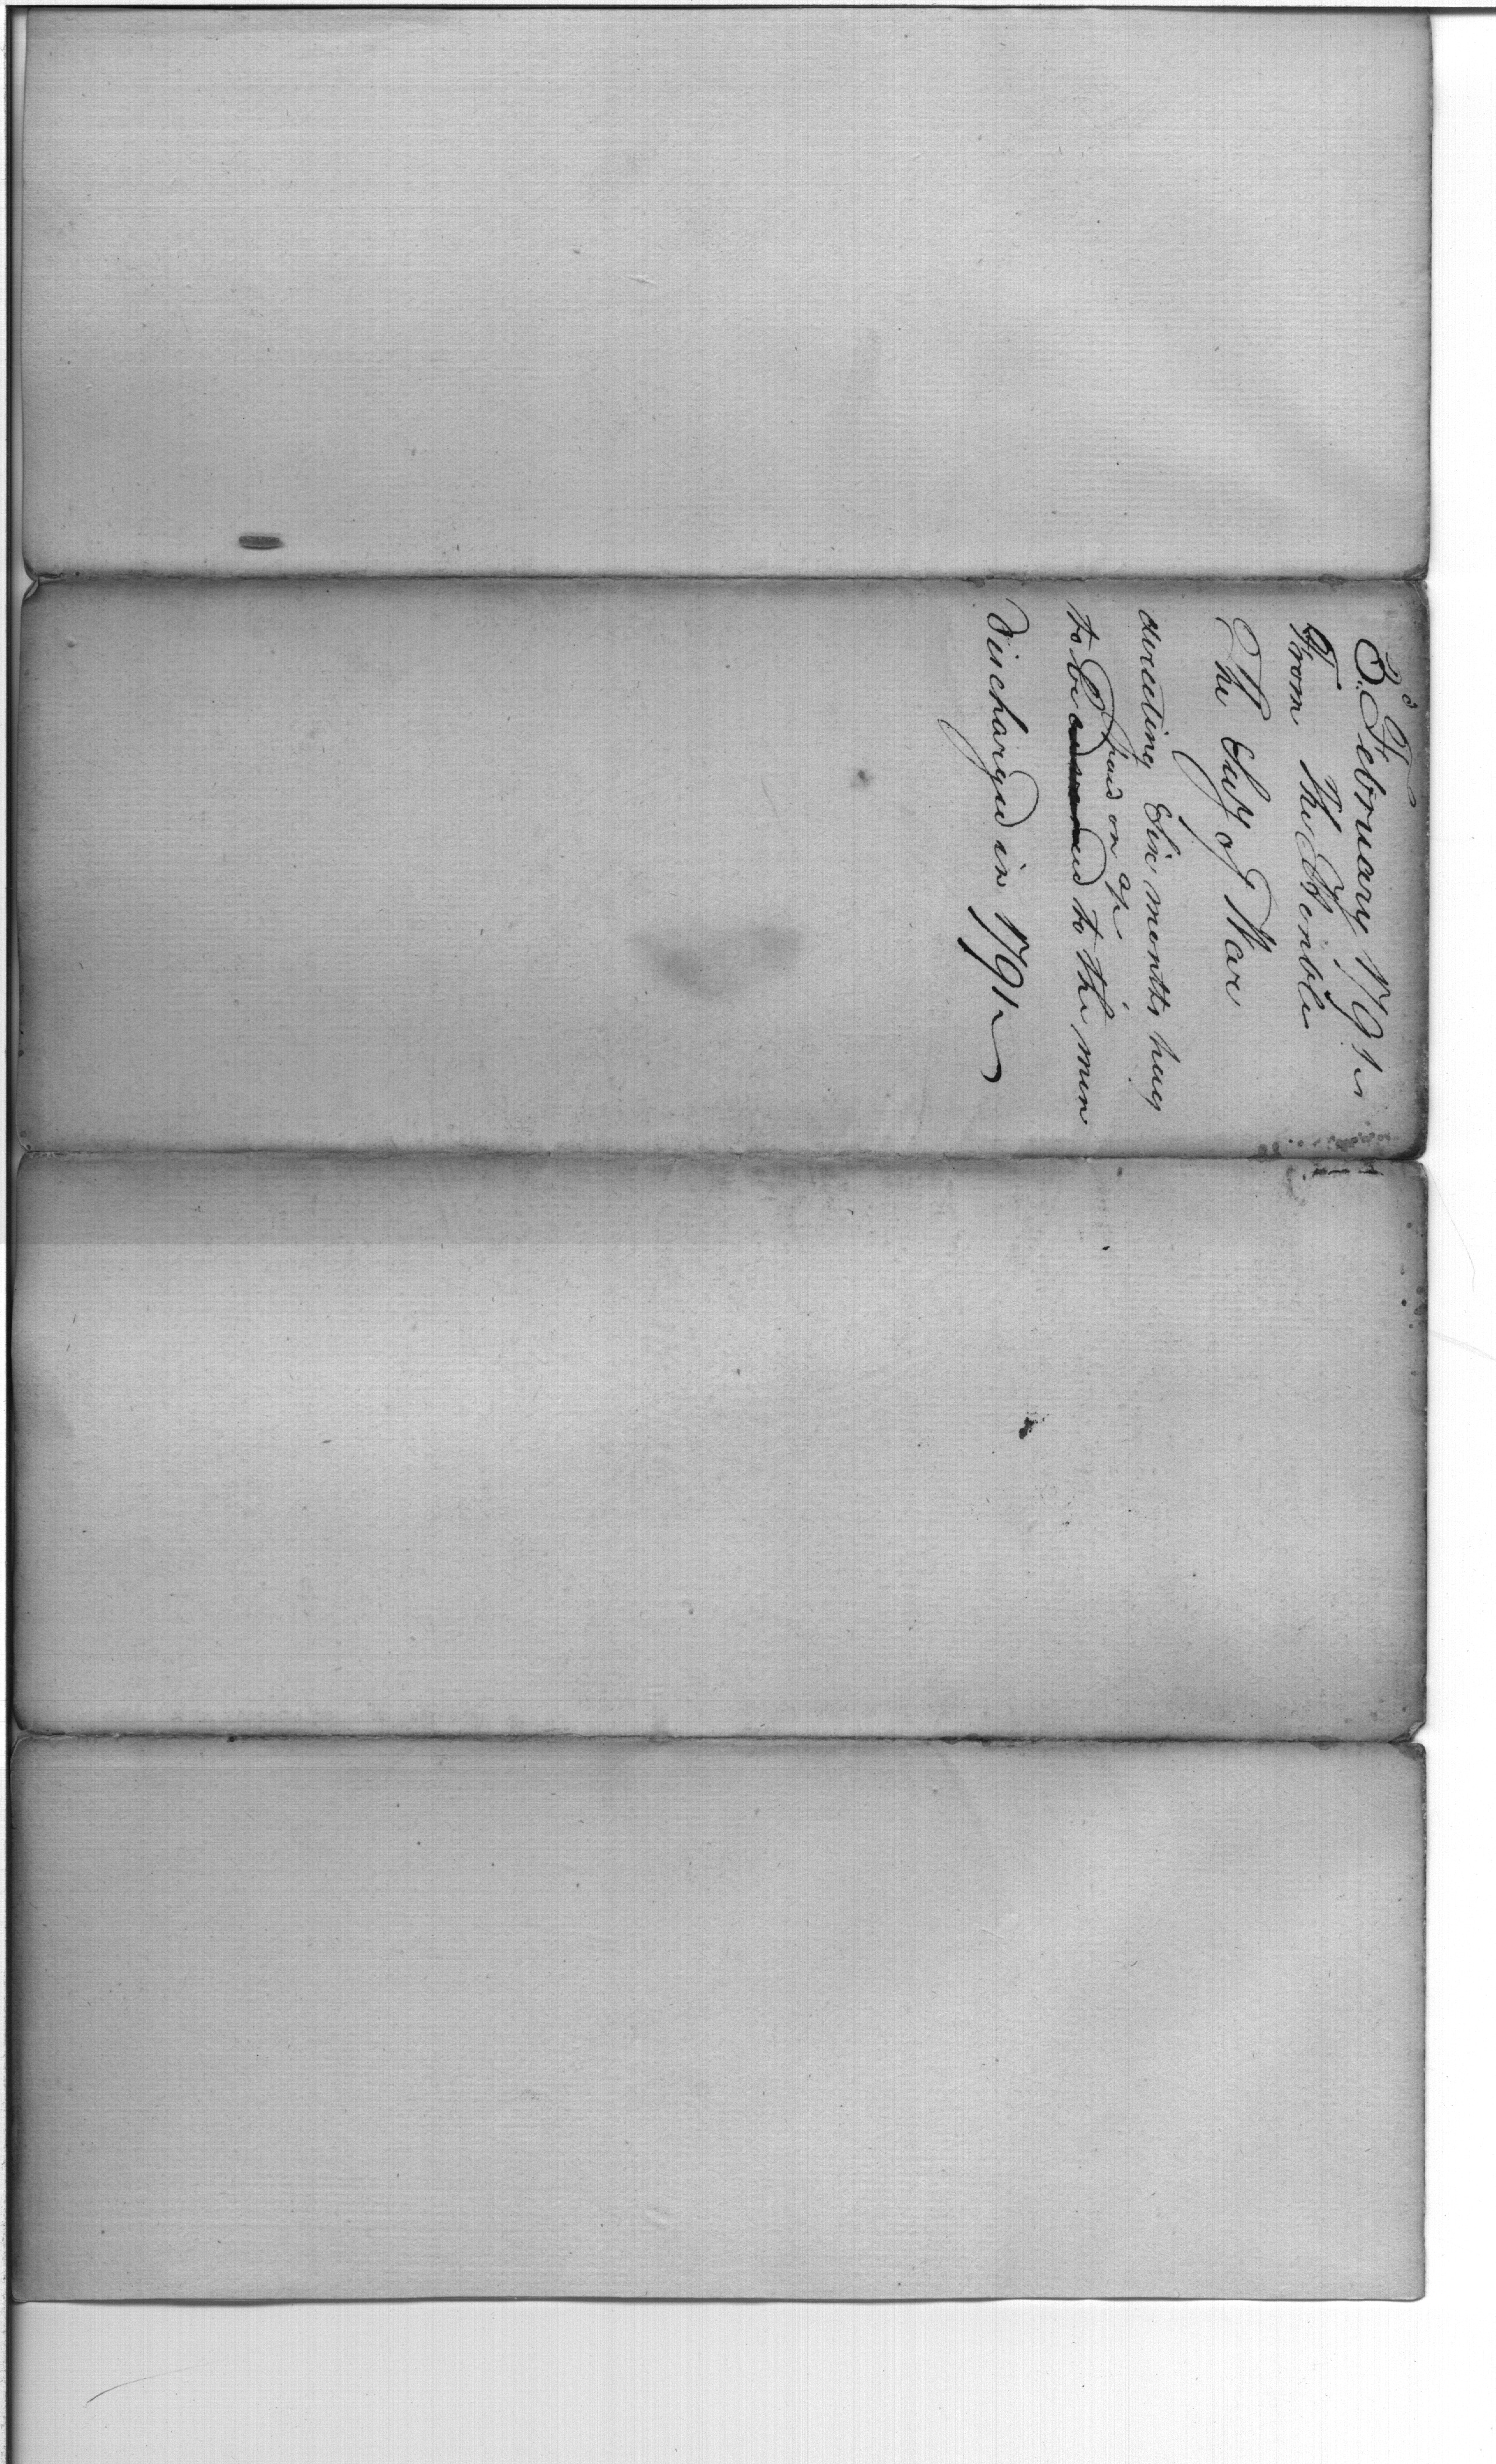 3d February 1791
From The Honble
The Secy of War
directing Six months pay
paid on ap
to be advanced to the men
discharged in 1791